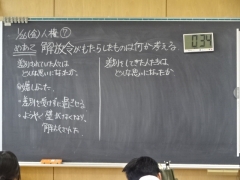 1/26(金)人権⑦
めあて 解放令がもたらしたものは何か考える
034
差別されていた人たちは
どんな思いになったか。
差別をしてきた人たちは
どんな思いになったか
・嬉しかった。
・差別を受けずに過ごせる
・ようやく壁がなくなり、